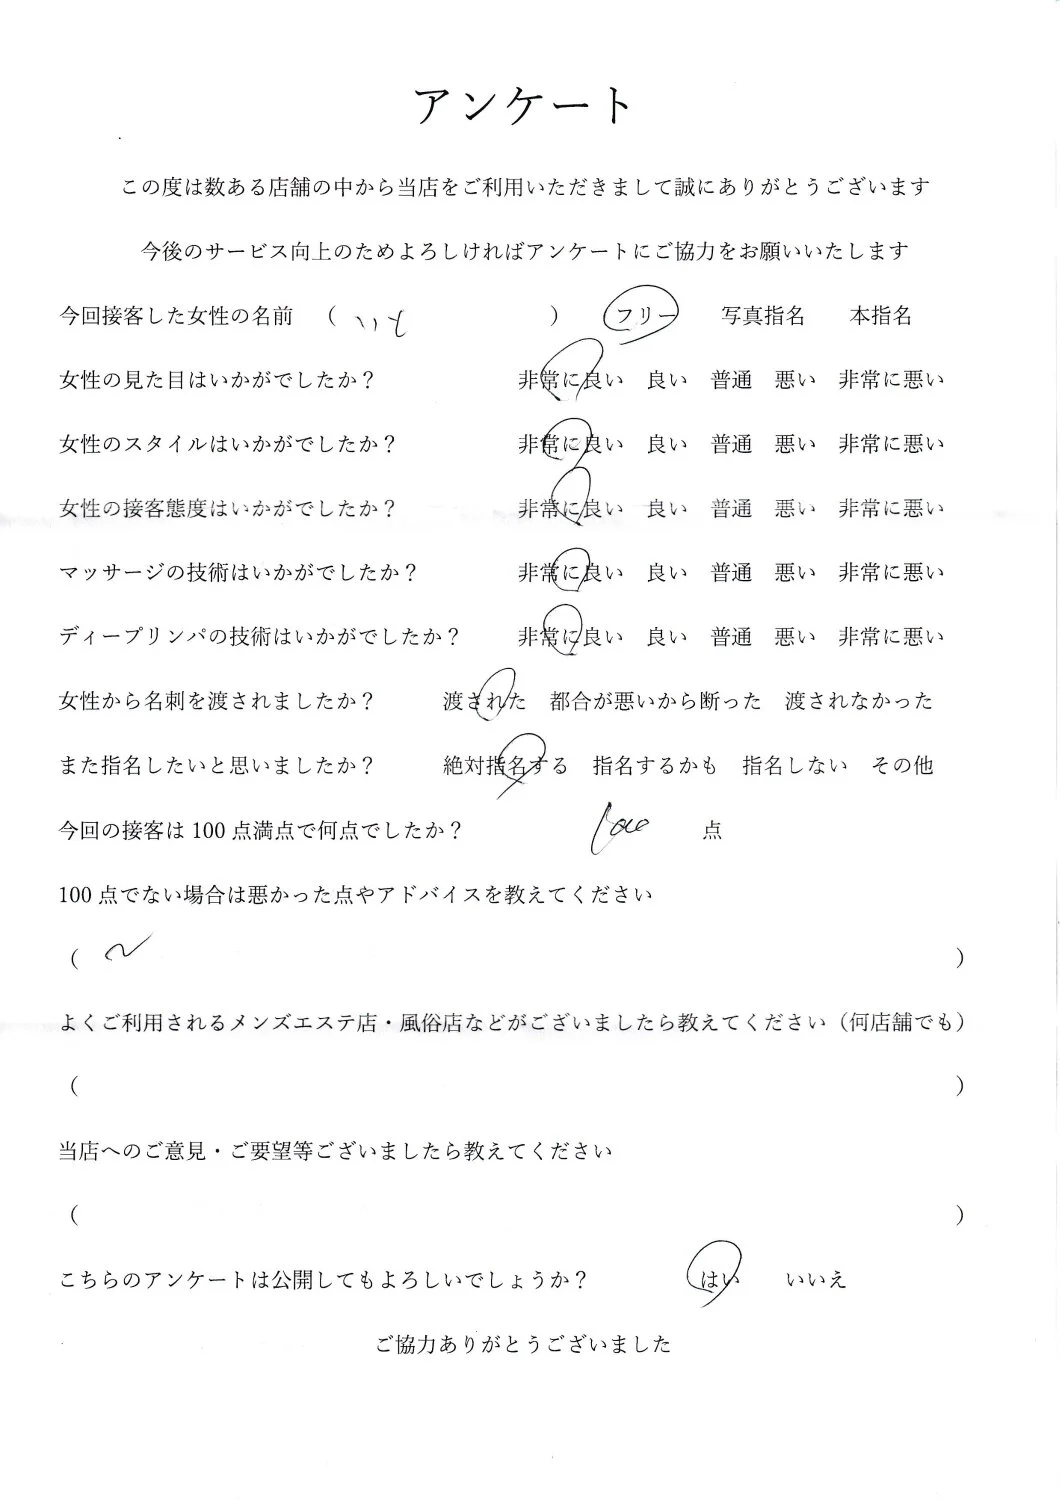 アンケート
この度は数ある店舗の中から当店をご利用いただきまして誠にありがとうございます
今後のサービス向上のためよろしければアンケートにご協力をお願いいたします
今回接客した女性の名前 ( ) フリー 写真指名 本指名
女性の見た目はいかがでしたか？ 非常に良い 良い 普通 悪い 非常に悪い
女性のスタイルはいかがでしたか？ 非常に良い 良い 普通 悪い 非常に悪い
女性の接客態度はいかがでしたか？ 非常に良い 良い 普通 悪い 非常に悪い
マッサージの技術はいかがでしたか？ 非常に良い 良い 普通 悪い 非常に悪い
ディープリンパの技術はいかがでしたか？ 非常に良い 良い 普通 悪い 非常に悪い
女性から名刺を渡されましたか？ 渡された 都合が悪いから断った 渡されなかった
また指名したいと思いましたか？ 絶対指名する 指名するかも 指名しない その他
今回の接客は 100 点満点で何点でしたか？ 点
100 点でない場合は悪かった点やアドバイスを教えてください
( )
よくご利用されるメンズエステ店・風俗店などがございましたら教えてください（何店舗でも）
( )
当店へのご意見・ご要望等ございましたら教えてください
( )
こちらのアンケートは公開してもよろしいでしょうか？ はい いいえ
ご協力ありがとうございました